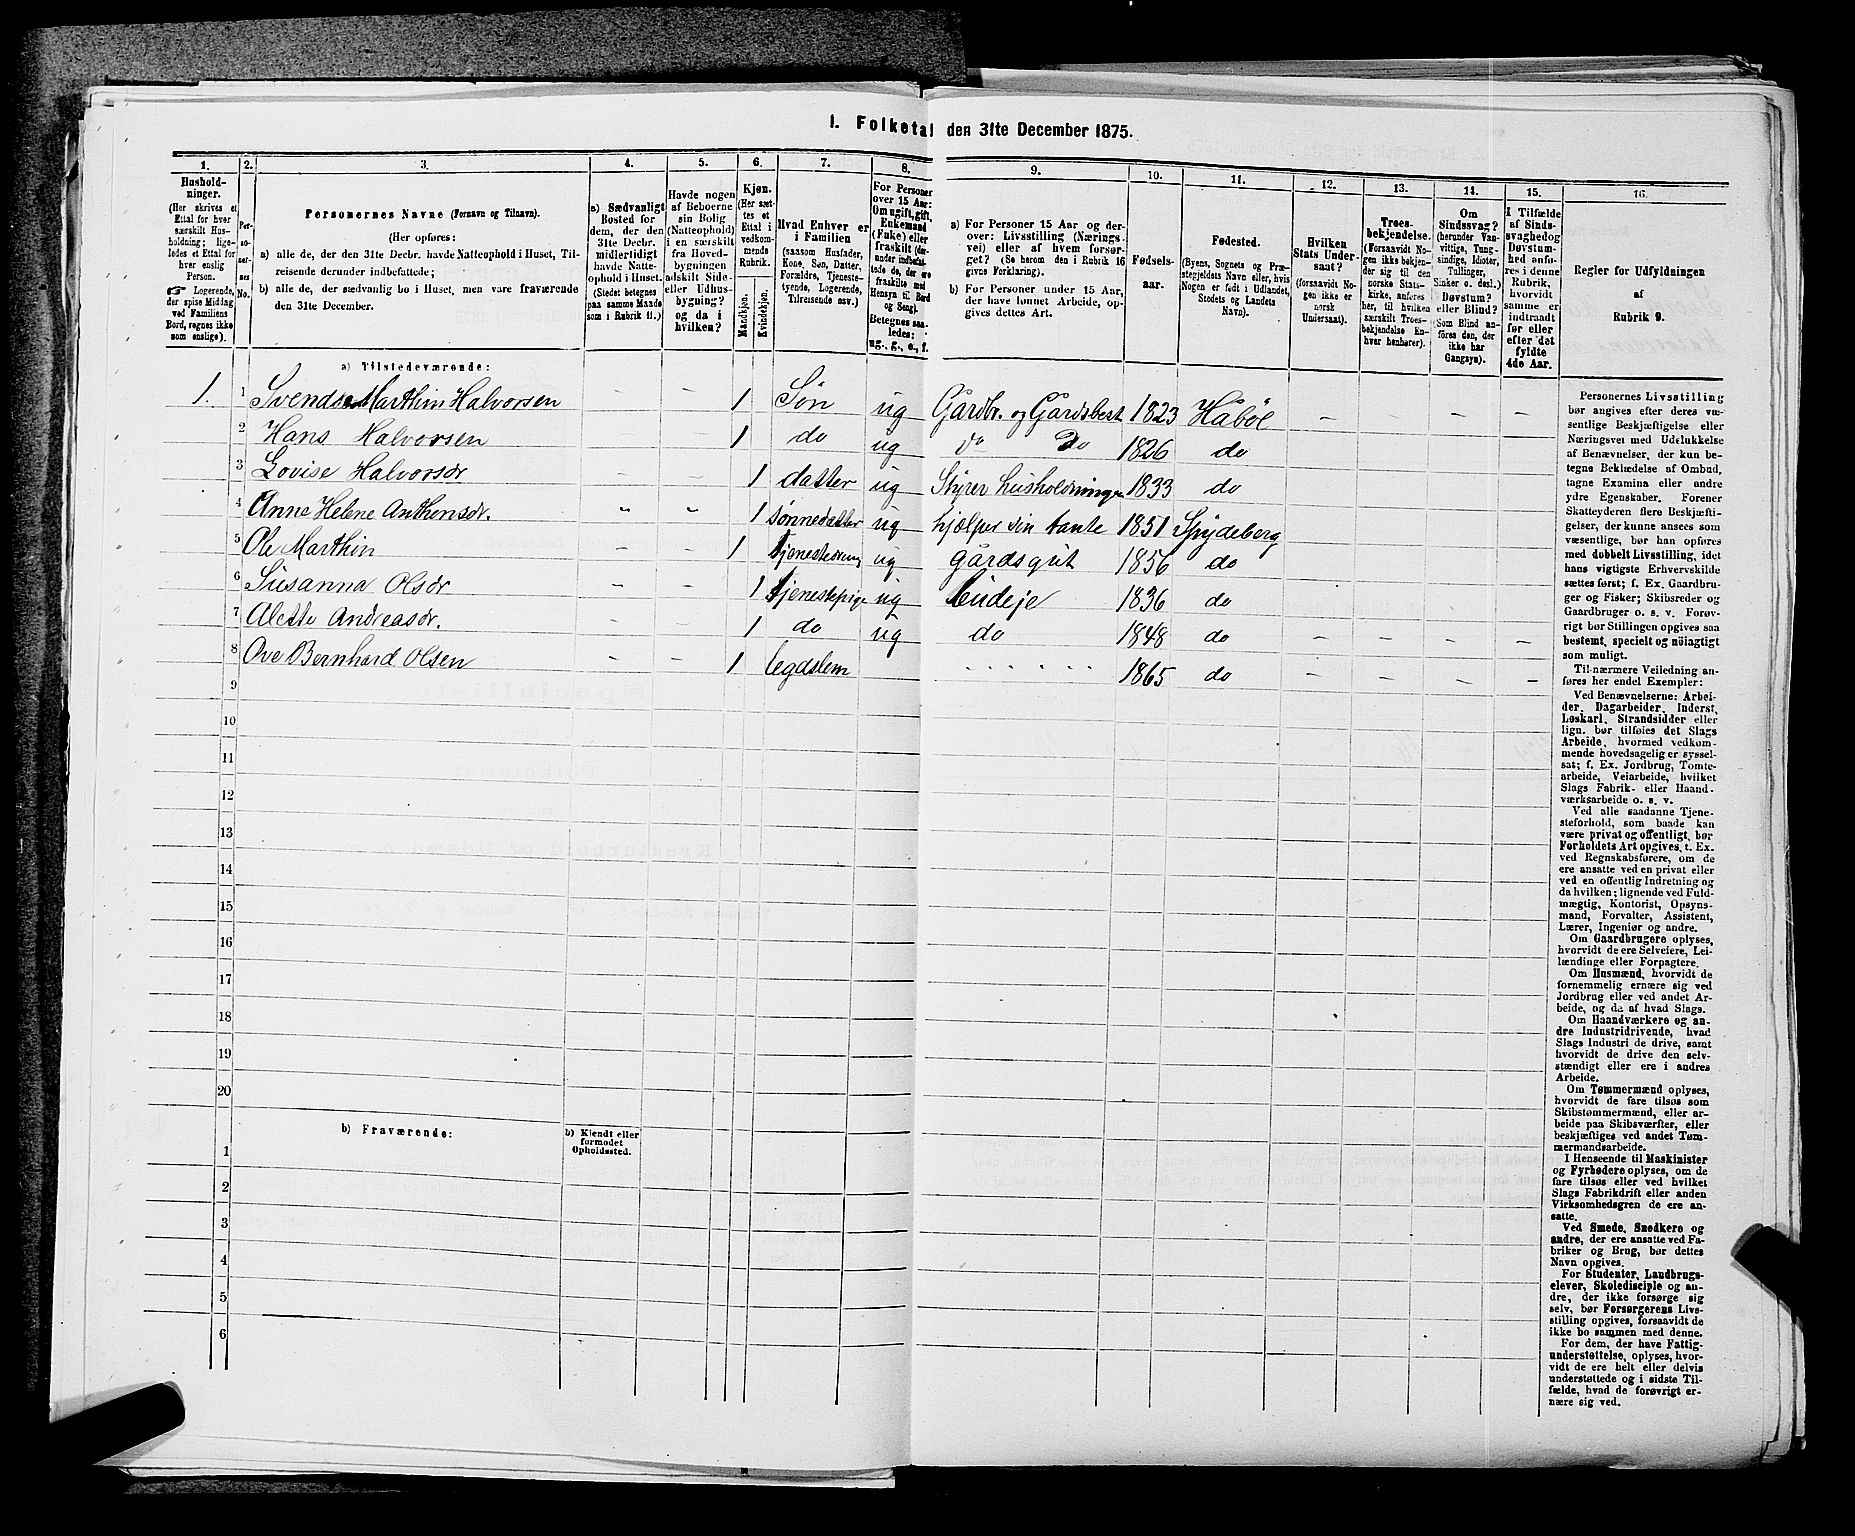 1. Folketal den 31te December 1875.
1. 2. 3. 4. 5. 6. 7. 8. 9. 10. 11. 12. 13. 14. 15. 16.
Hushold-
ninger.
(Her skrives et
Ettal for hver
særskilt Hus-
holdning; lige-
ledes et Ettal for
hver enslig
Person.
☞ Logerende,
der spise Middag
ved Familiens
Bord, regnes ikke
som enslige).
Per-
so-
ner-
nes
No.
Personernes Navne (Fornavn og Tilnavn).
(Her opføres:
a) alle de, der den 31te Decbr. havde Natteophold i Huset, Til-
reisende derunder indbefattede;
b) alle de, der sædvanlig bo i Huset, men vare fraværende
den 31te December.
a) Sædvanligt
Bosted for
dem, der den
31te Decbr.
midlertidigt
havde Natte-
ophold i Huset.
(Stedet betegnes
paa samme Maade
som i Rubrik 11.)
Havde nogen
af Beboerne
sin Bolig
(Natteophold)
i en særskilt
fra Hoved-
bygningen
adskilt Side-
eller Udhus-
bygning?
og da i
hvilken?
Kjøn.
(Her sæt-
tes et
Ettal i
vedkom-
mende
Rubrik.
Mandkjøn.
Kvindekjøn.
Hvad Enhver er
i Familien
(saasom Husfader,
Kone, Søn, Datter,
Forældre, Tjeneste-
tyende, Logerende,
Tilreisende osv.)
For Personer
over 15 Aar:
Om ugift, gift,
Enkemand
(Enke) eller
fraskilt
Betegnes saa-
ledes:
ug., g., e., f.
a) For Personer 15 Aar og der-
over: Livsstilling (Nærings-
vei) eller af hvem forsør-
get? (Se herom den i Rubrik 16
givne Forklaring).
b) For Personer under 15 Aar,
der have lønnet Arbeide, op-
gives dettes Art.
Fødsels-
aar.
Fødested.
(Byens, Sognets og Præ-
stegjeldets Navn eller, hvis
Nogen er født i Udlandet,
Stedets og Landets
Navn).
Hvilken
Stats Under-
saat?
(forsaavidt No-
gen ikke er
norsk
Undersaat).
Troes-
bekjendelse.
(Forsaavidt No-
gen ikke bekjen-
der sig til den
norske Stats-
kirke, anføres
her, til hvilken
særskilt Troes-
bekjendelse En-
hver henhører).
Om
Sindssvag?
(herunder Van-
vittige, Idioter,
Tullinger,
Sinker o. desl.)
Døvstum?
eller Blind?
(Som Blind an-
føres den, der
ikke har
Gangsyn).
I Tilfælde
af Sinds-
svaghed og
Døvstum-
hed anfø-
res i denne
Rubrik,
hvorvidt
samme er
indtraadt
før eller
efter det
fyldte
4de Aar.
Regler for Udfyldningen
af
Rubrik 9.
a) Tilstedeværende:
1. 1 Svend Marthin Halvorsen - - 1 Søn ug Gårdbr. og Gårdsbest 1823 Håbøl - - - -
2 Hans Halvorsen 1 do ug do Do 1826 do
3 Lovise Halvorsdr - - 1 datter ug Styrer husholdningen 1833 do
4 Anne Helene Anthensdr. " " 1 sønnedatter ug hjælper sin tante 1851 Spydeberg
5 Ole Marthin - - 1 tjenestedreng ug gårdsgut 1856 do
6 Susanna Olsdr - - 1 tjenestepige ug budeje 1836 do
7 Alette Andreasdr. - - 1 do ug do 1848 do - - - -
8 Ove Bernhard Olsen - - 1 legdslem 1865 do - - - -
9
10
11
12
13
14
15
16
17
18
19
20
b) Fraværende:
b) Kjendt eller
formodet
Opholdssted.
1
2
3
4
5
6
Personernes Livsstilling
bør angives efter deres væ-
sentlige Beskjæftigelse eller
Næringsvei med Udelukkelse
af Benævnelser, der kun be-
tegne Beklædelse af Ombud,
tagne Examina eller andre
ydre Egenskaber. Forener
Skatteyderen flere Beskjæfti-
gelser, der kunne ansees som
væsentlige, bør han opføres
med dobbelt Livsstilling, idet
hans vigtigste Erhvervskilde
sættes først; f. Ex. Gaardbru-
ger og Fisker; Skibsreder og
Gaardbruger o. s. v. Forøv-
rigt bør Stillingen opgives saa
bestemt, specielt og nöiagtigt
som muligt.
Til nærmere Veiledning an-
føres her endel Exempler:
Ved Benævnelserne: Arbei-
der, Dagarbeider, Inderst,
Løskarl, Strandsidder eller
lign. bør tilføies det Slags
Arbeide, hvormed vedkom-
mende hovedsagelig er syssel-
sat; f. Ex. Jordbrug, Tomte-
arbeide, Veiarbeide, hvilket
Slags Fabrik- eller Haand-
værksarbeide o. s. v.
Ved alle saadanne Tjene-
steforhold, som baade kan
være privat og offentligt, bør
Forholdets Art opgives, t. Ex.
ved Regnskabsførere, om de
ere ansatte ved en privat eller
ved en offentlig Indretning og
da hvilken; lignende ved Fuld-
mægtig, Kontorist, Opsyns-
mand, Forvalter, Assistent,
Lærer, Ingeniør og andre.
Om Gaardbrugere oplyses,
hvorvidt de ere Selveiere, Lei-
lændinge eller Forpagtere.
Om Husmænd, hvorvidt de
fornemmelig ernære sig ved
Jordbrug eller ved andet Ar-
beide, og da af hvad Slags.
Om Haandværkere og an-
dre Industridrivende, hvad
Slags Industri de drive, samt
hvorvidt de drive den selv-
stændigt eller ere i andres
Arbeide.
Om Tømmermænd oplyses,
hvorvidt de fare tilsøs som
Skibstømmermænd, eller ar-
beide paa Skibsværfter, eller
beskjæftiges ved andet Tøm-
mermandsarbeide.
I Henseende til Maskinister
og Fyrbødere oplyses, om de
fare tilsøs eller ved hvilket
Slags Fabrikdrift eller anden
Virksomhedsgren de ere an-
satte.
Ved Smede, Snedkere og
andre, der ere ansatte ved Fa-
briker og Brug, bør dettes
Navn opgives.
For Studenter, Landbrugs-
elever, Skoledisciple og an-
dre, der ikke forsørge sig
selv, bør Forsørgerens Livs-
stilling opgives, forsaavidt de
ikke bo sammen med denne.
For dem, der have Fattig-
understøttelse, oplyses, hvor-
vidt de ere helt eller delvis
understøttede og i sidste Til-
fælde, hvad de forøvrigt er-
nære sig ved.